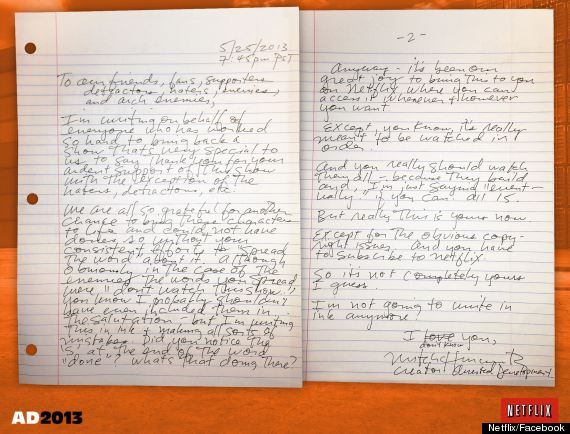 5/25/2013
7:45pm PST
To our friends, fans, supporters
detractors, haters, enemies,
and arch enemies,
I'm writing on behalf of
everyone who has worked
so hard to bring back a
show that's very special to
us, to say thank you for your
ardent support of this show
with the exception of the
haters, detractors, etc.
We are all so grateful for another
chance to bring these characters
to life and could not have
dones, so without your
consistent effort to spread
the word about it. Although
obviously in the case of the
enemies the words you spread
were "don't watch this show."
You know I probably shouldn't
have even included them in
the salutation, but I'm writing
this in ink & making all sorts of
mistakes. Did you notice the
"s," at the end of the word
"done"? What's that doing there?
-2-
Anyway - it's been our
great joy to bring this to you
on Netflix where you can
access it whenever & however
you want.
Except, you know, it's really
meant to be watched in
order.
And you really should watch
them all - because they build
and, I'm just saying "event-
ually" if you can. All 15.
But really this is yours now.
Except for the obvious copy-
right issues. And you have
to subscribe to Netflix.
So it's not completely yours
I guess.
I'm not going to write in
ink anymore!
I love you,
don't know
Mitchell Hurwitz
Creator: Arrested Development
AD2013
NETFLIX
Netflix/Facebook